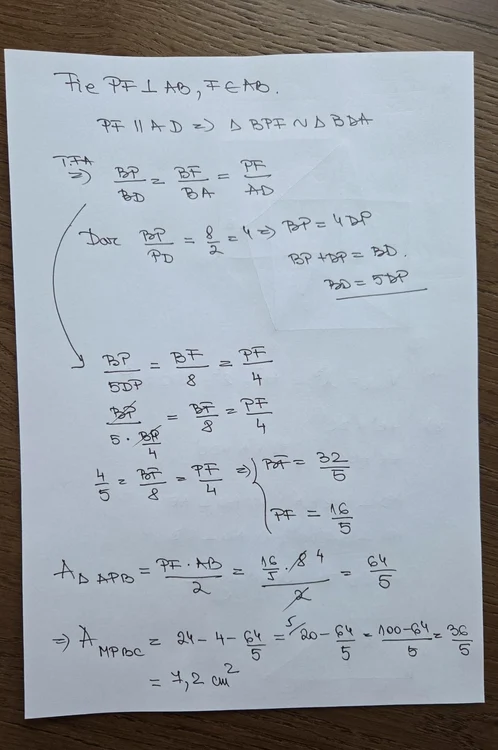 Fie PF ⊥ AB, F ∈ AB.
PF ∥ AD => Δ BPF ~ Δ BDA
T.F.A => BP/BD = BF/BA = PF/AD
Dar BP/PD = 8/2 = 4 => BP = 4DP
BP + DP = BD.
BD = 5DP
BP/5DP = BF/8 = PF/4
BP/(5 · BP/4) = BF/8 = PF/4
4/5 = BF/8 = PF/4 => { BF = 32/5
PF = 16/5
A Δ APB = PF · AB/2 = (16/5 · 8 4)/2 = 64/5
=> A MPBC = 24 - 4 - 64/5 = 5/20 - 64/5 = 100-64/5 = 36/5
= 7,2 cm²